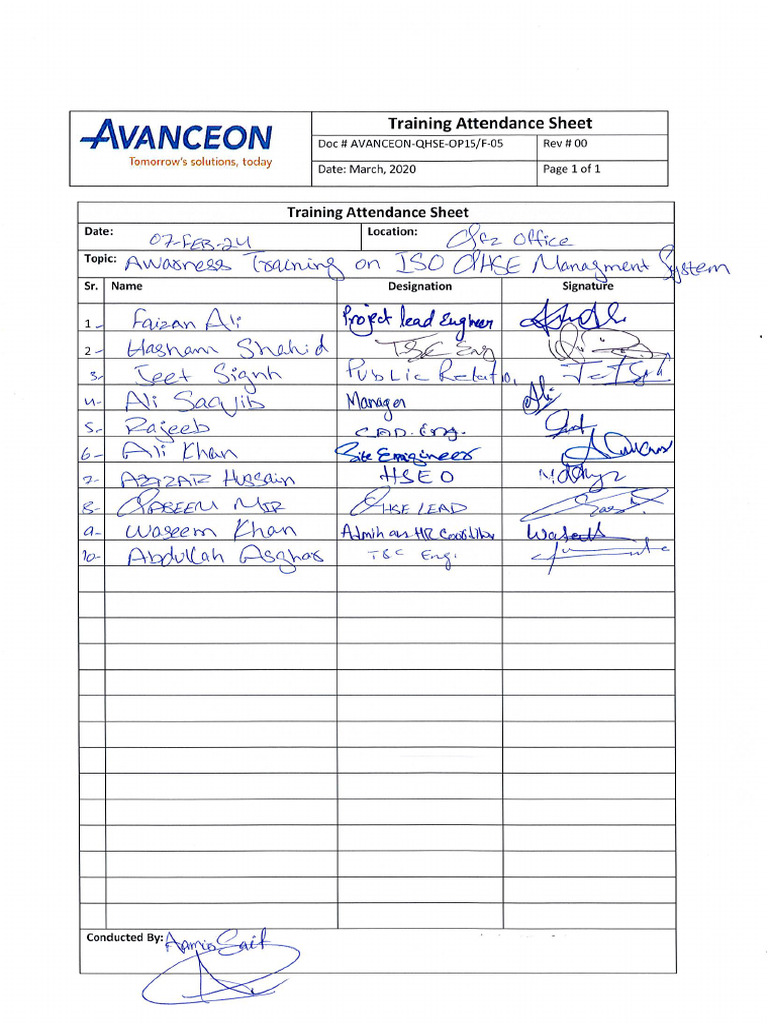 AVANCEON
Tomorrow's solutions, today
Training Attendance Sheet
Doc # AVANCEON-QHSE-OP15/F-05 Rev # 00
Date: March, 2020 Page 1 of 1
Training Attendance Sheet
Date: 07-FEB-24 Location: Office
Topic: Awarness Training on ISO QHSE Managment System
Sr. Name Designation Signature
1- Faizan Ali Project lead Engineer
2- Hasham Shahid T&C Eng
3- Jeet Signh Public Relatio.
4- Ali Saqyib Manager Ali
5- Rajeeb CAD. Eng.
6- Ali Khan Site Emigineer
7- Hussain HSEO
8- QASEEM MIR QHSE LEAD
9- Waseem Khan Admin HR
10- Abdullah Asghar T&C Eng.
Conducted By: Aamir Saif